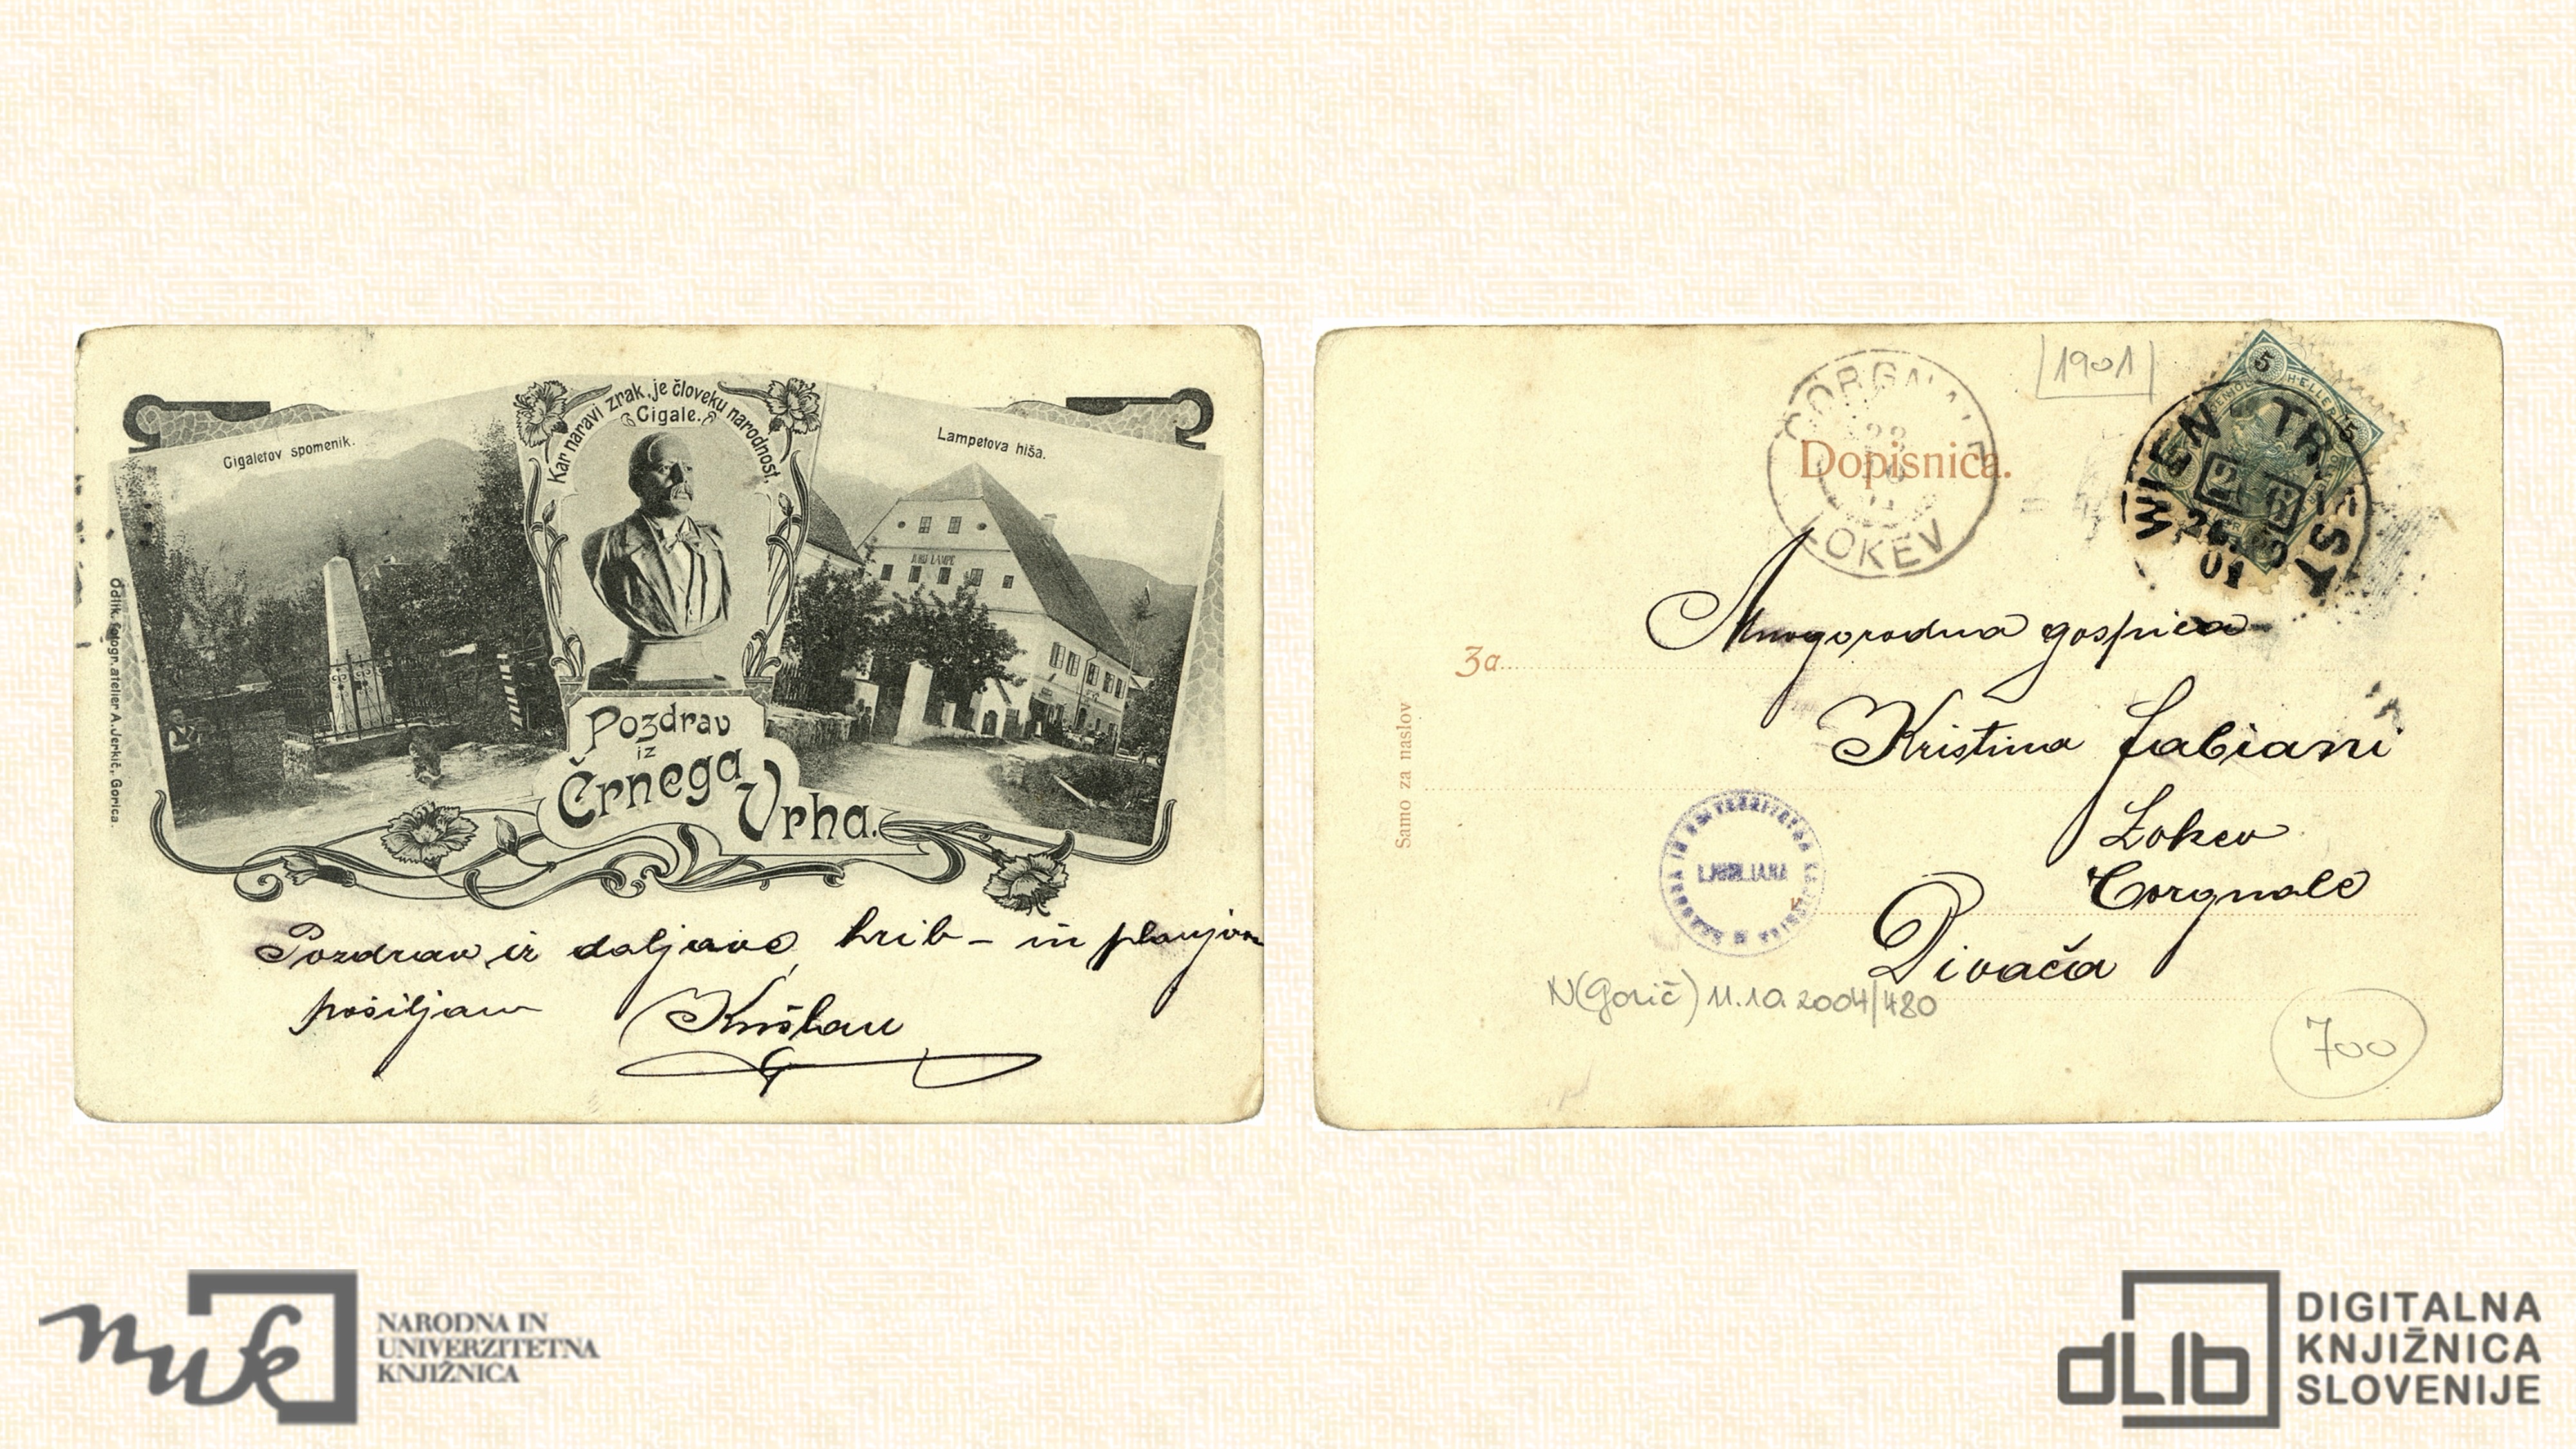 Kar naravi zrak, je človeku narodnost.
Cigale.
Cigaletov spomenik.
Lampetova hiša.
LAMPE
Odlik. fotogr. atelier A. Jerkič, Gorica.
Pozdrav
iz
Črnega
Vrha.
Pozdrav iz daljave hrib- in planjav
pošiljam
[1901]
5 HELLER 5
CORGNALE
LOKEV
WIEN-TRIEST
01
Dopisnica.
Za
Samo za naslov
Mnogorodna gospica
Kristina Fabiani
Lokev
Corgnale
Divača
LJUBLJANA
N(Gorič) 11.10.2004/480
700
nuk
NARODNA IN
UNIVERZITETNA
KNJIŽNICA
dLib
DIGITALNA
KNJIŽNICA
SLOVENIJE